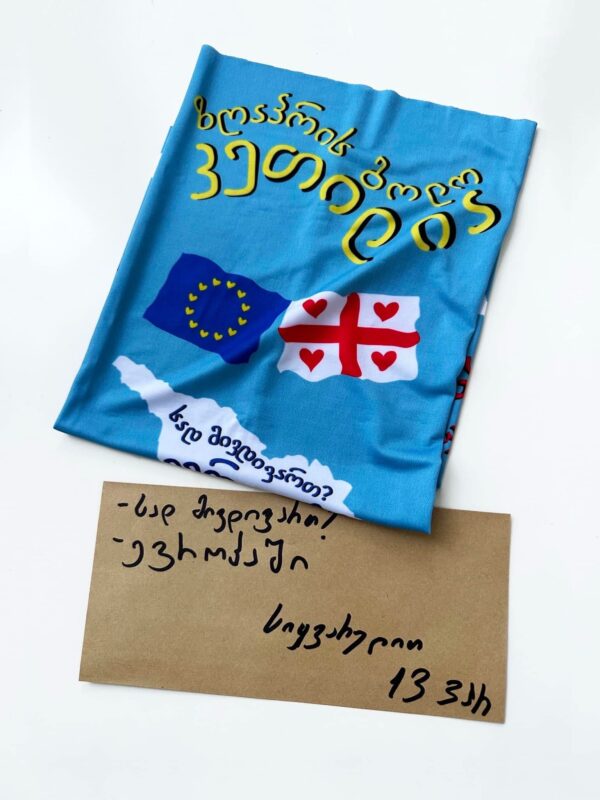 ზღაპრის ბოლო
კეთილია
სად მივდივართ?
- სად მივდივართ?
- ევროპაში
სიყვარულით
13